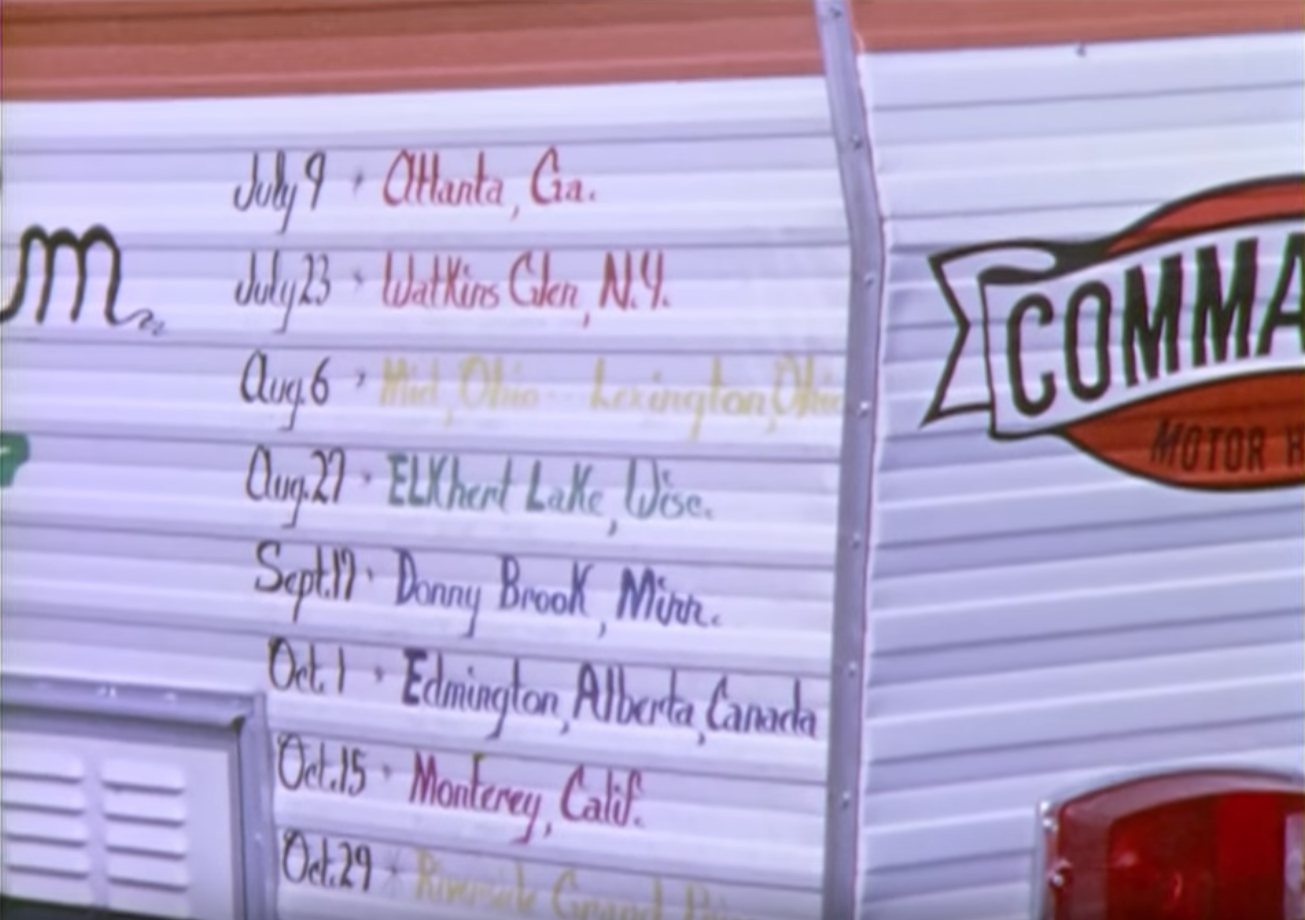 m
July 9 * Atlanta, Ga.
July 23 * Watkins Glen, N.Y.
Aug. 6 * Mid, Ohio - Lexington, Ohio
Aug. 27 * ELKhert LaKe, Wisc.
Sept. 17 * Donny BrooK, Minn.
Oct. 1 * Edmington, Alberta, Canada
Oct. 15 * Monterey, Calif.
Oct. 29 * Riverside Grand Prix
COMMA
MOTOR H